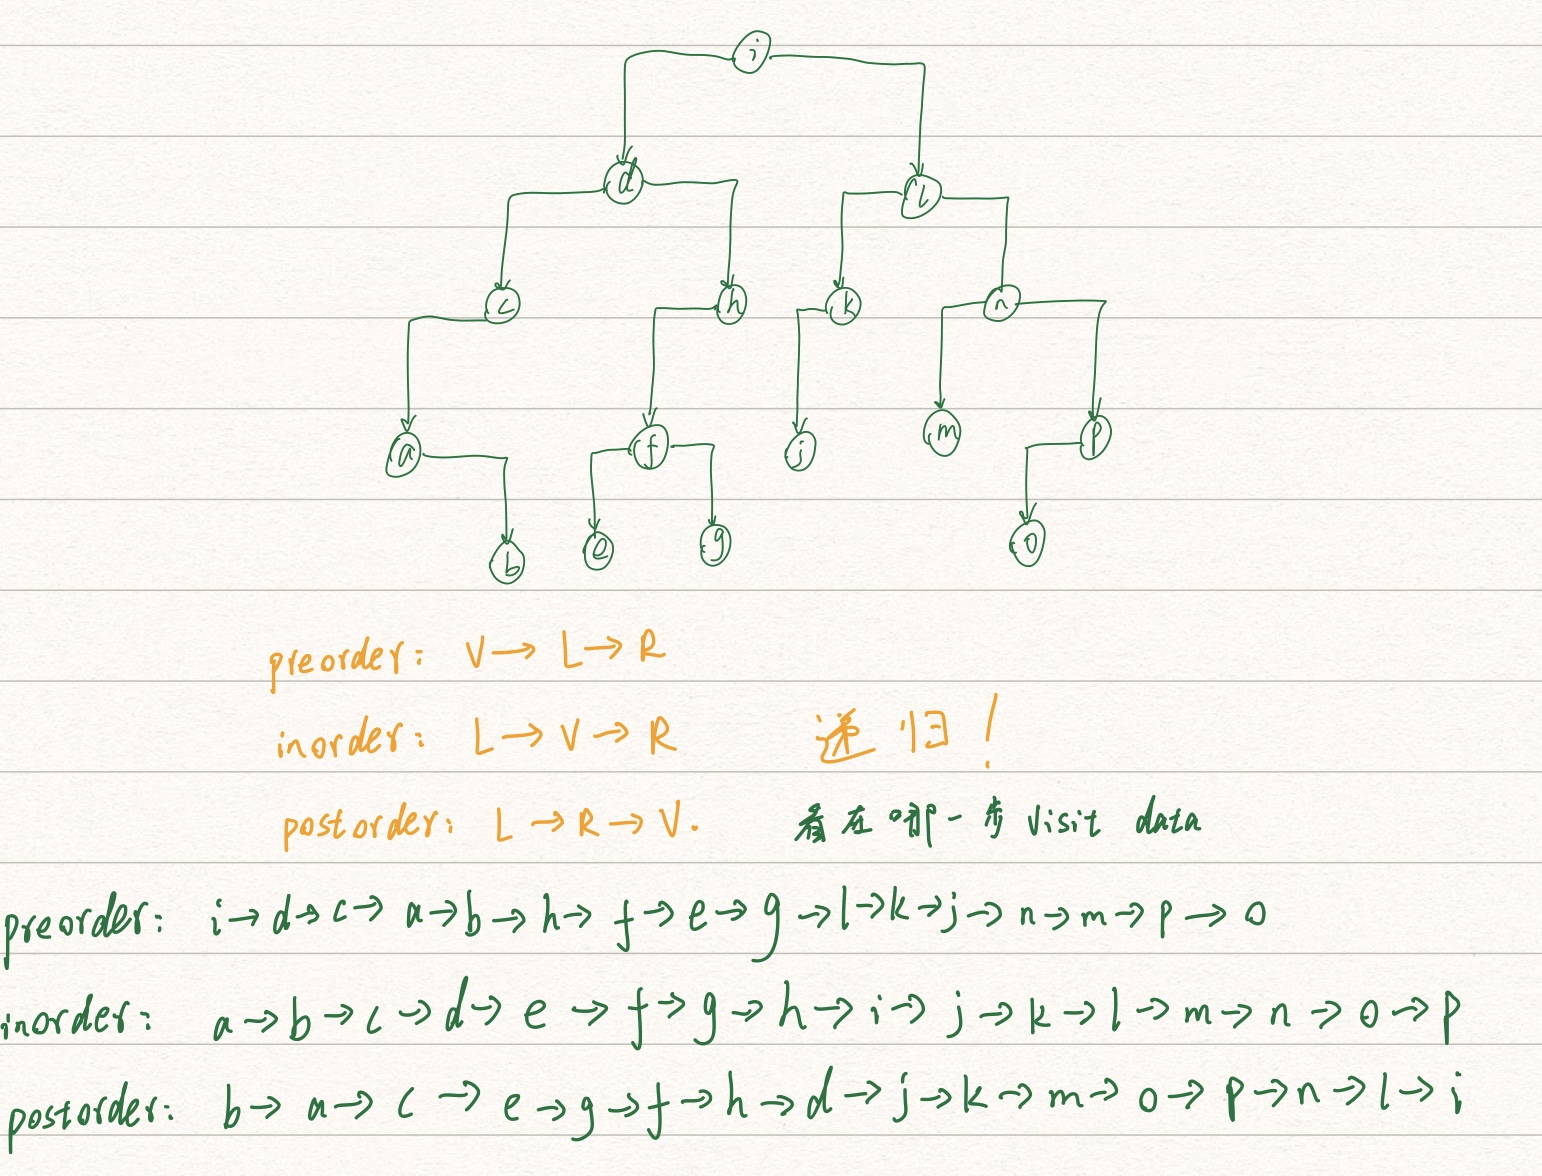 i
d l
c h k n
a f j m p
b e g o
preorder: V → L → R
inorder: L → V → R 递归!
postorder: L → R → V. 看在哪一步 visit data
preorder: i → d → c → a → b → h → f → e → g → l → k → j → n → m → p → o
inorder: a → b → c → d → e → f → g → h → i → j → k → l → m → n → o → p
postorder: b → a → c → e → g → f → h → d → j → k → m → o → p → n → l → i